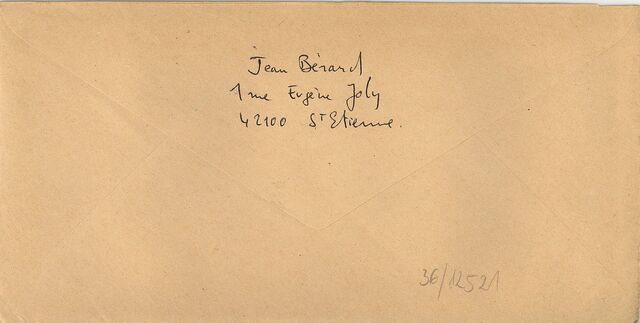 Jean Bérard
1 rue Eugène Joly
42100 St Etienne.
36/12521